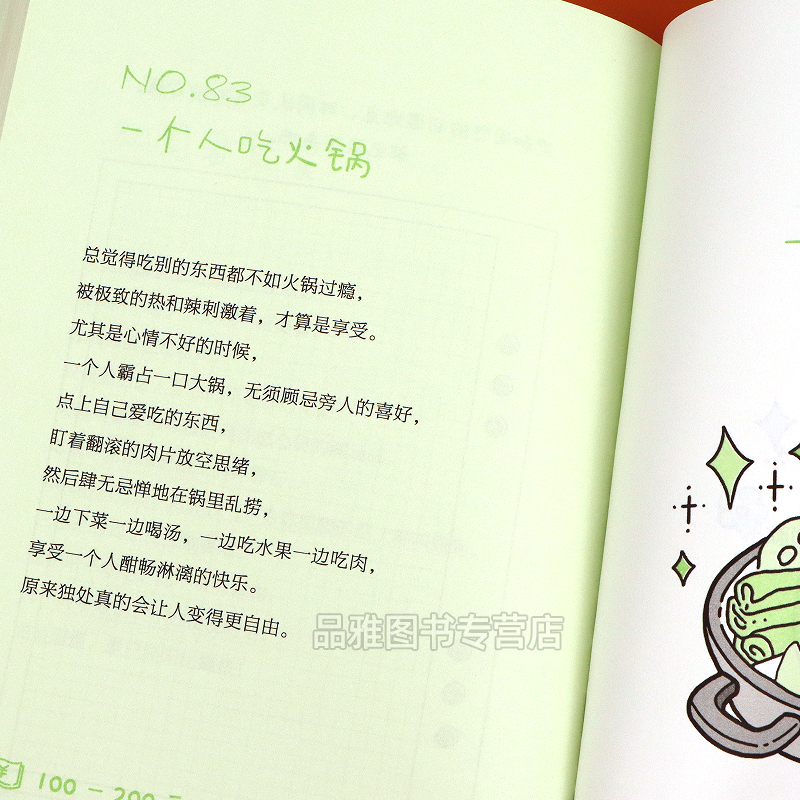 NO.83
一个人吃火锅
总觉得吃别的东西都不如火锅过瘾，
被极致的热和辣刺激着，才算是享受。
尤其是心情不好的时候，
一个人霸占一口大锅，无须顾忌旁人的喜好，
点上自己爱吃的东西，
盯着翻滚的肉片放空思绪，
然后肆无忌惮地在锅里乱捞，
一边下菜一边喝汤，一边吃水果一边吃肉，
享受一个人酣畅淋漓的快乐。
原来独处真的会让人变得更自由。
品雅图书专营店
¥ 100 - 200